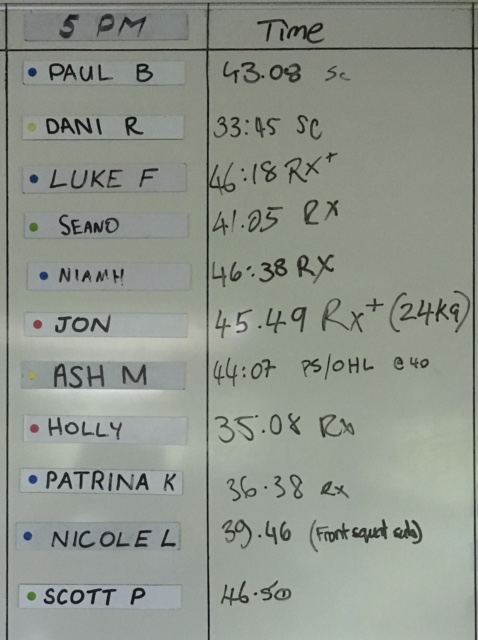 5 PM Time
PAUL B 43.08 Sc
DANI R 33:45 SC
LUKE F 46:18 RX+
SEANO 41.05 RX
NIAMH 46:38 RX
JON 45.49 RX+ (24Kg)
ASH M 44:07 PS/OHL @40
HOLLY 35.08 Rx
PATRINA K 36.38 Rx
NICOLE L 39.46 (Front squat
SCOTT P 46.50